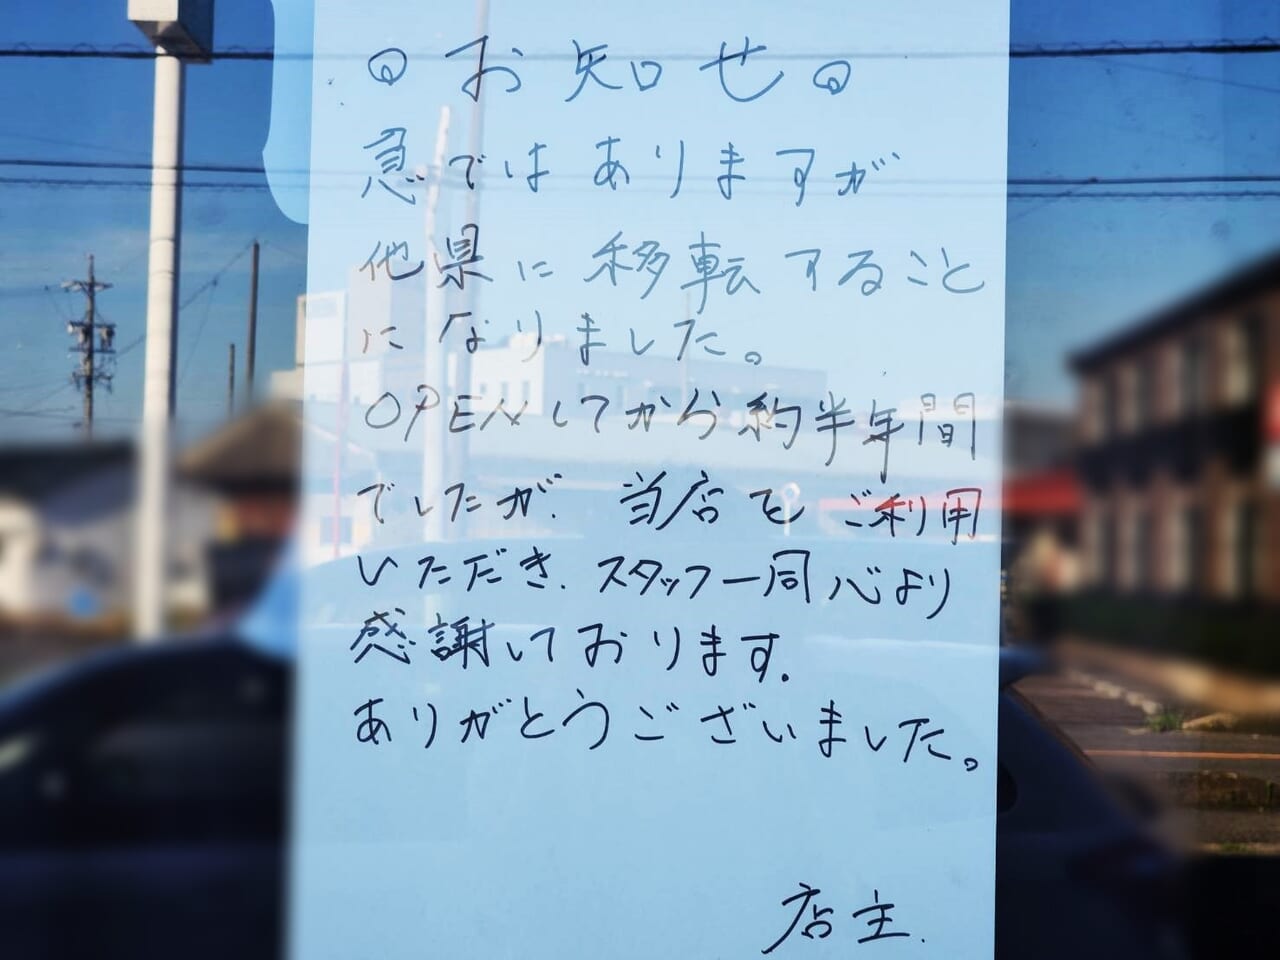 ◎ お知らせ ◎
急ではありますが
他県に移転すること
になりました。
OPENしてから約半年間
でしたが、当店をご利用
いただき、スタッフ一同心より
感謝しております。
ありがとうございました。
店主.